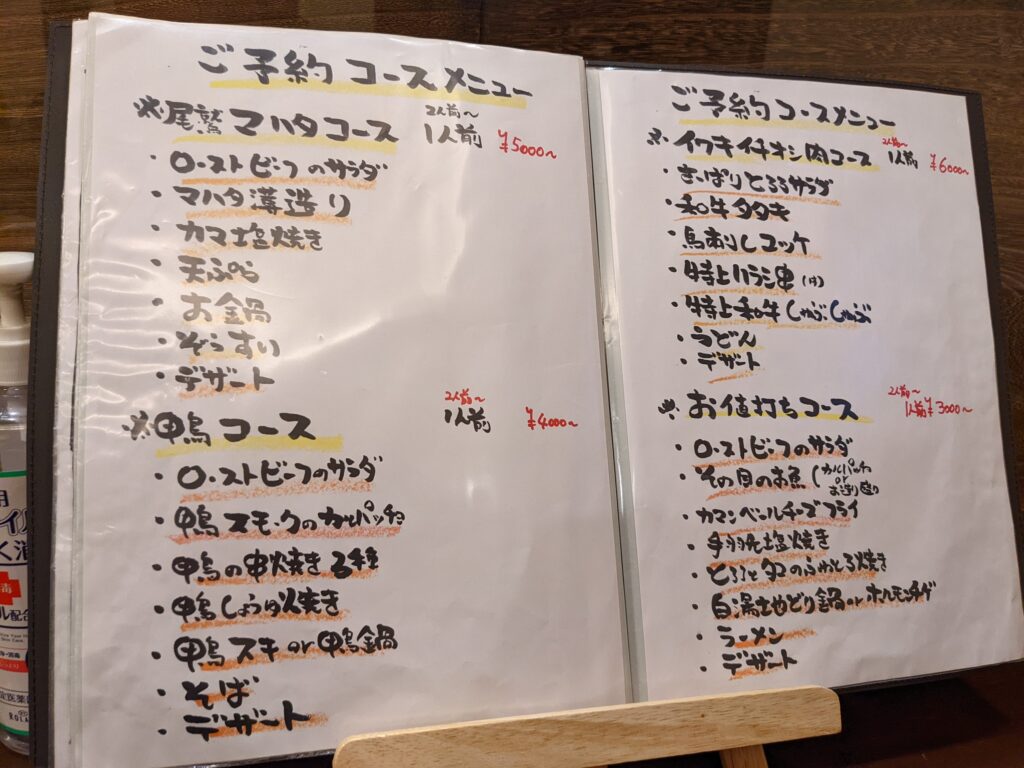 ご予約 コースメニュー
※尾鷲 マハタコース
2人前〜
1人前 ¥5000〜
・ローストビーフのサラダ
・マハタ薄造り
・カマ塩焼き
・天ぷら
・お鍋
・ぞうすい
・デザート
※鴨コース
2人前〜
1人前 ¥4000〜
・ローストビーフのサラダ
・鴨スモークのカルパッチョ
・鴨の串焼き2種
・鴨しょうゆ焼き
・鴨スキ or 鴨鍋
・そば
・デザート
ご予約コースメニュー
※イワキイチオシ肉コース
2人前〜
1人前 ¥6000〜
・さっぱりとろろサラダ
・和牛タタキ
・鳥刺しユッケ
・特上ハラシ串
・特上和牛しゃぶしゃぶ
・うどん
・デザート
※お値打ちコース
2人前〜
1人前¥3000〜
・ローストビーフのサラダ
・その日のお魚(カルパッチョ
or
お造り盛り
・カマンベールチーズフライ
・手羽先塩焼き
・とろろとタコのふわとろ焼き
・白湯土やどり鍋orホルモンチゲ
・ラーメン
・デザート